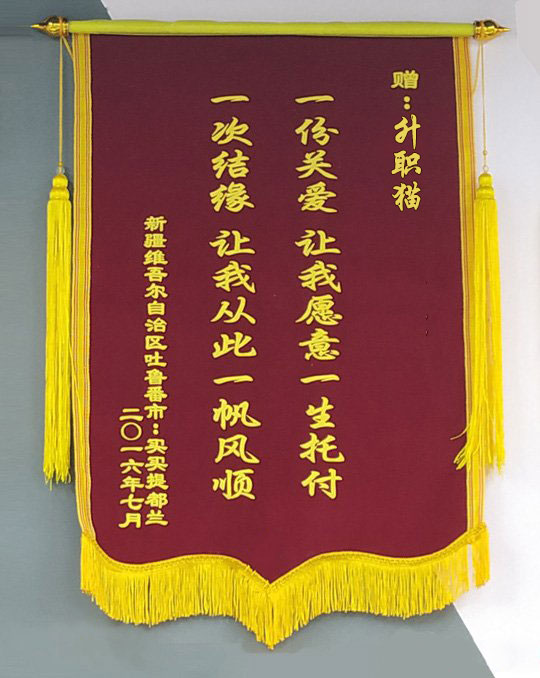 赠：升职猫
一份关爱 让我愿意一生托付
一次结缘 让我从此一帆风顺
新疆维吾尔自治区吐鲁番市：买买提都兰
二〇一六年七月